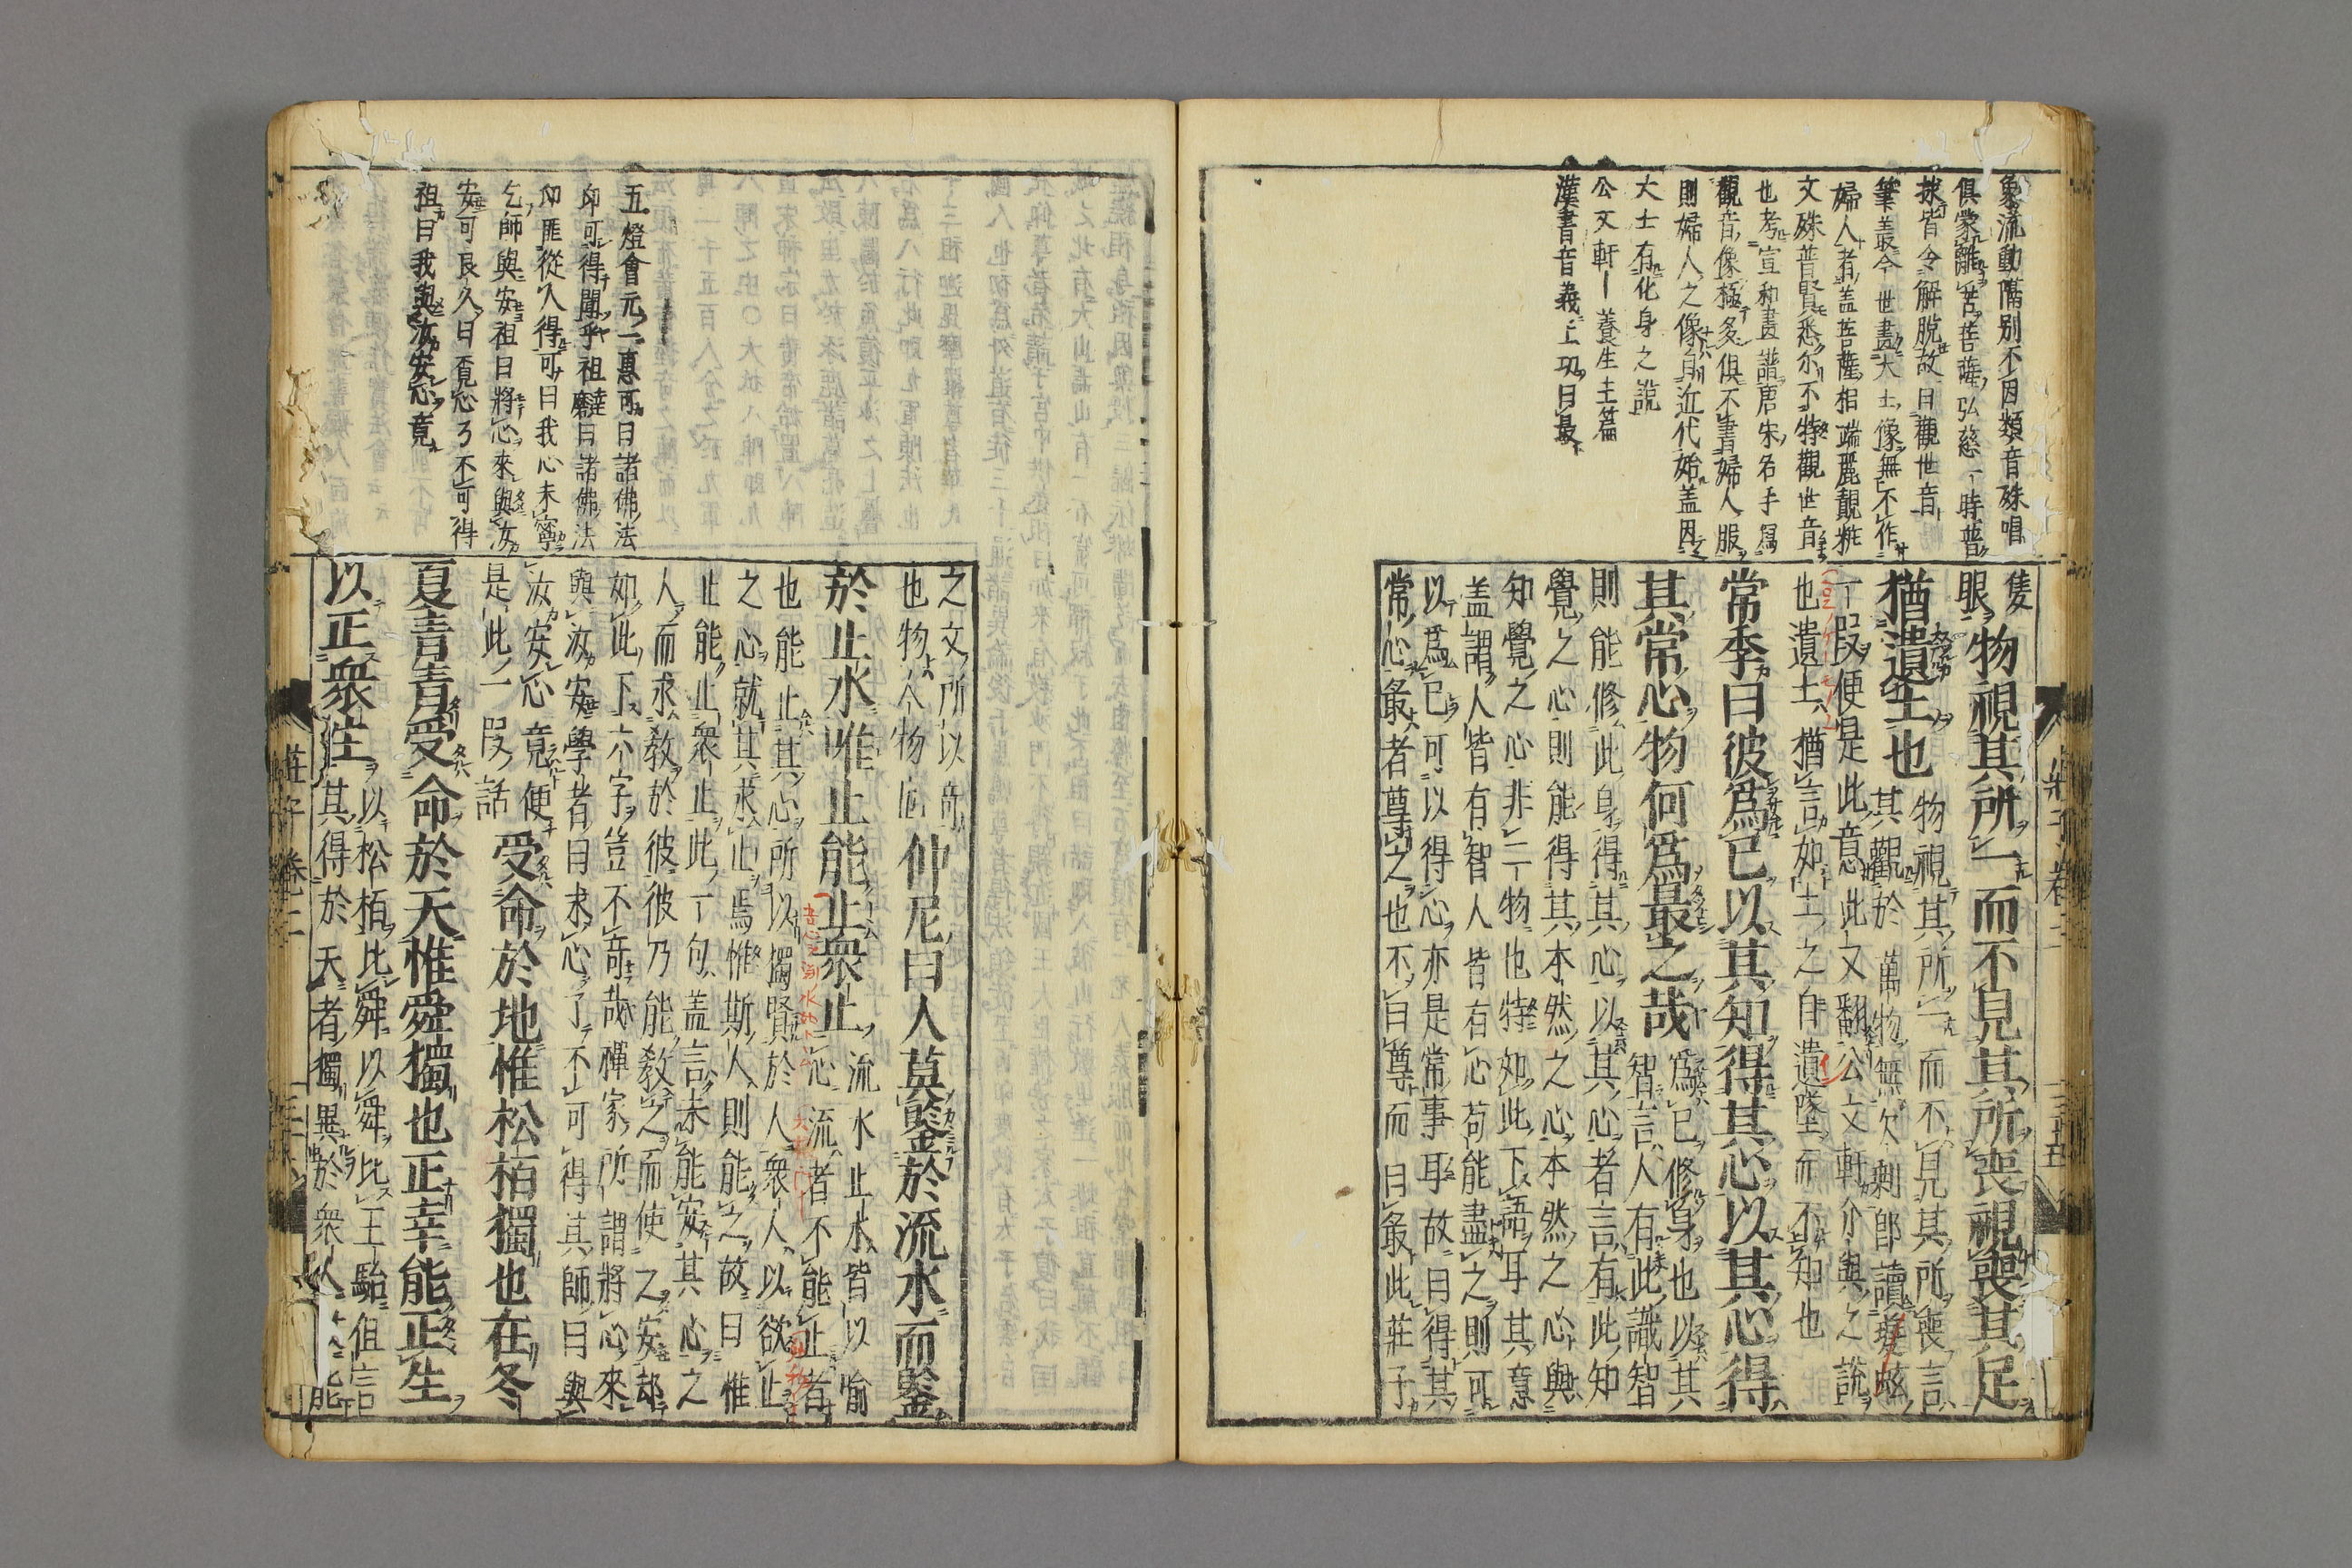 象流動隔別不同類音殊唱
俱蒙離苦菩薩弘慈一時普
救皆令解脫故曰觀世音
筆叢今世畫大士像無不作
婦人者蓋菩薩相端麗靚粧
文殊普賢悉尒不特觀世音
也考宣和畫譜唐宋名手寫
觀音像極多俱不書婦人服
則婦人之像自近代始蓋因
大士有化身之說
公文軒ー養生主篇
漢書音義上功曰最
隻
眼
物視其所一而不見其所喪視喪其足
猶遺土也
物視其所一而不見其所喪言
其觀於萬物無欠剩郎讀
一段便是此意此又翻公文軒介與之說
也遺土猶言如土之自遺墜而不知也
常季曰彼爲已以其知得其心以其心得
其常心物何爲最之哉
爲已修身也以其
智言人有此識智
則能修此身得其心以其心者言有此知
覺之心則能得其本然之心本然之心與
知覺之心非二物也特如此下語耳其意
蓋謂人皆有智人皆有心苟能盡之則可
以爲已可以得心亦是常事耳故曰得其
常心最者尊之也不曰尊而曰最此莊子
莊子卷二
三五
之文所以奇
也物人物也
仲尼曰人莫鑒於流水而鑒
於止水唯止能止衆止
流水止水皆以喻
心流者不能止者
也能止其心所以獨賢於人衆人以欲止
之心就其求止焉惟斯人則能之故曰惟
止能止衆止此一句蓋言未能安其心之
人而求敎於彼彼乃能敎之而使之安却
如此下六字豈不奇哉禪家所謂將心來
與汝安學者曰求心了不可得其師曰與
汝安心竟便
是此一段話
受命於地惟松栢獨也在冬
夏青青受命於天惟舜獨也正幸能正生
以正衆生
以松栢比舜以舜比王駘但言
其得於天者獨異於衆人
五燈會元一惠可曰諸佛法
印可得聞乎祖達磨曰諸佛法
印匪從人得可曰我心未寧
乞師與安祖曰將心來與汝
安可良久曰覓心了不可得
祖曰我與汝安心竟
莊子卷二